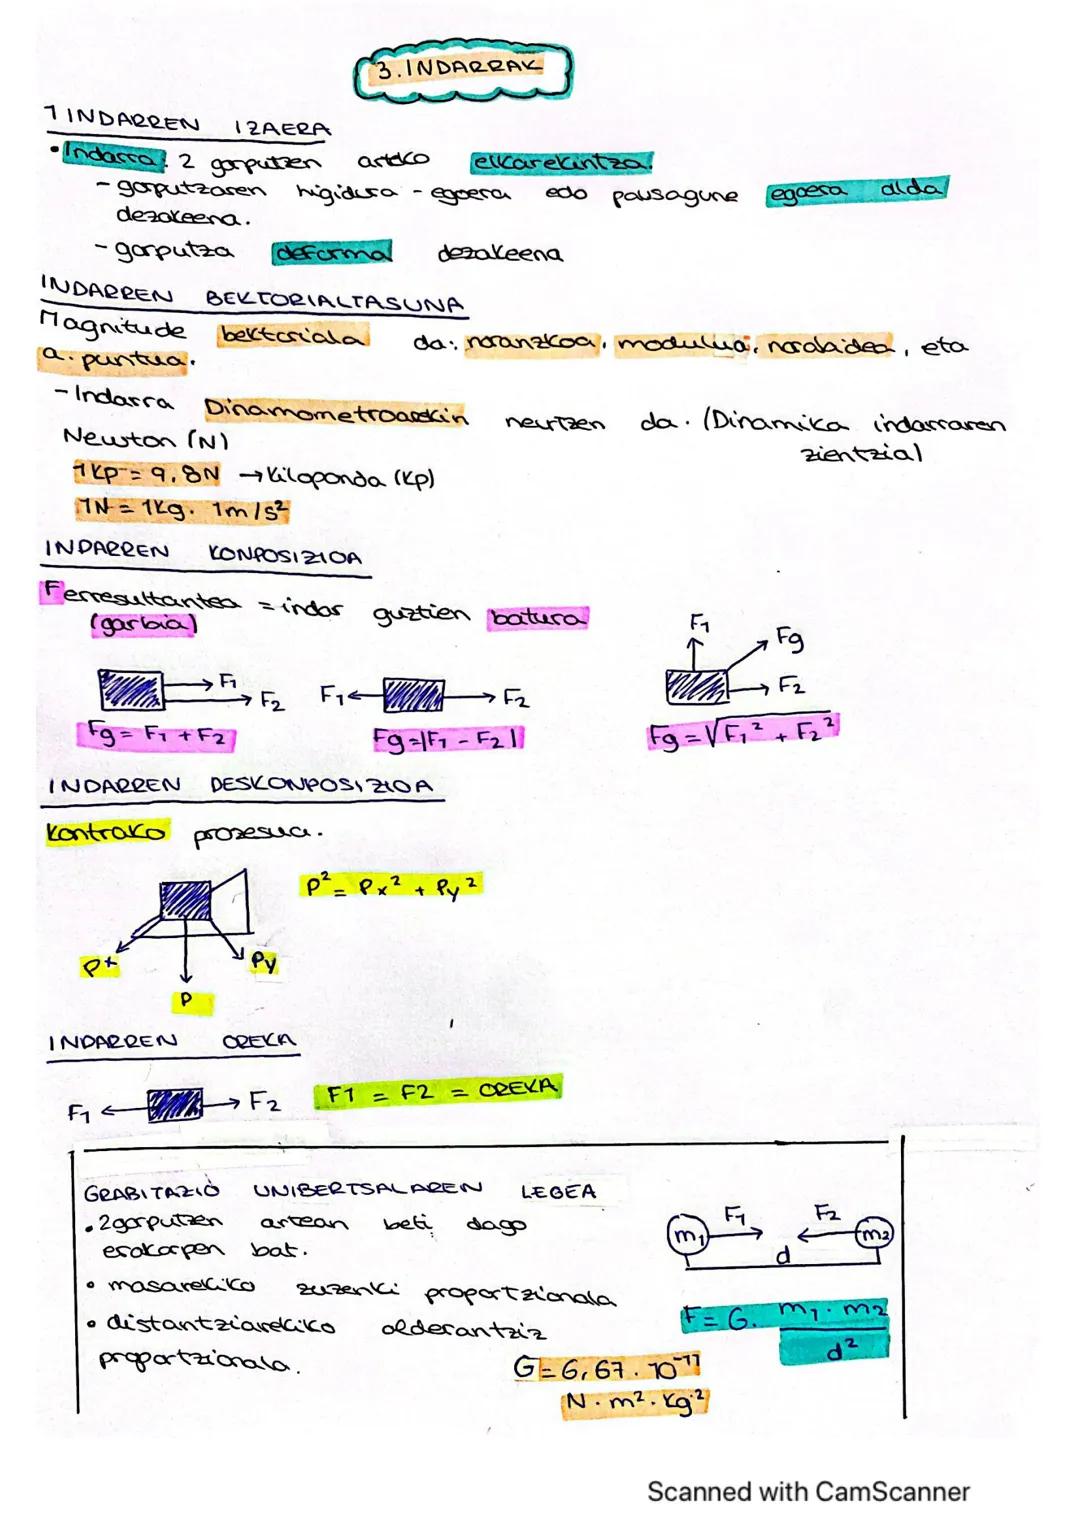 3. INDARRAK
1 INDARREN IZAERA
• Indarra: 2 gorputzen arteko elkarekintza.
- gorputzaren higidura - egoera edo pausagune egoera alda
dezakeena.
- gorputza deforma dezakeena
INDARREN BEKTORIALTASUNA
Magnitude bektoriala da: noranzkoa, modulua, norabidea, eta
a. puntua.
- Indarra Dinamometroarekin neurtzen da. (Dinamika indarraren
zientzia)
Newton (N)
1Kp = 9,8N → Kiloponda (Kp)
1N = 1Kg. 1m/s²
INDARREN KONPOSIZIOA
Ferresultantea = indar guztien batura
(garbia)
F1 Fg
F1 F2 F1 F2 F2
Fg = F1 + F2 Fg=|F1 - F2| Fg = √F1² + F2²
INDARREN DESKONPOSIZIOA
Kontrako prozesua.
P² = Px² + Py²
Px Py
P
INDARREN OREKA
F1 F2 F1 = F2 = OREKA
GRABITAZIO UNIBERTSALAREN LEGEA
• 2 gorputzen artean beti dago
erakarpen bat.
F1 F2
m1 m2
d
• masarekiko zuzenki proportzionala
• distantziarekiko alderantziz
proportzionala.
F = G. m1 . m2
d²
G = 6,67 . 10⁻¹¹
N . m² . Kg⁻²
Scanned with CamScanner